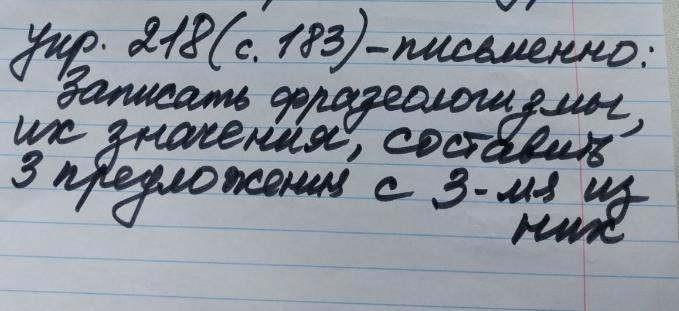 упр. 218 (с. 183) – письменно:
Записать фразеологизмы,
их значения, составить
3 предложения с 3-мя из
них